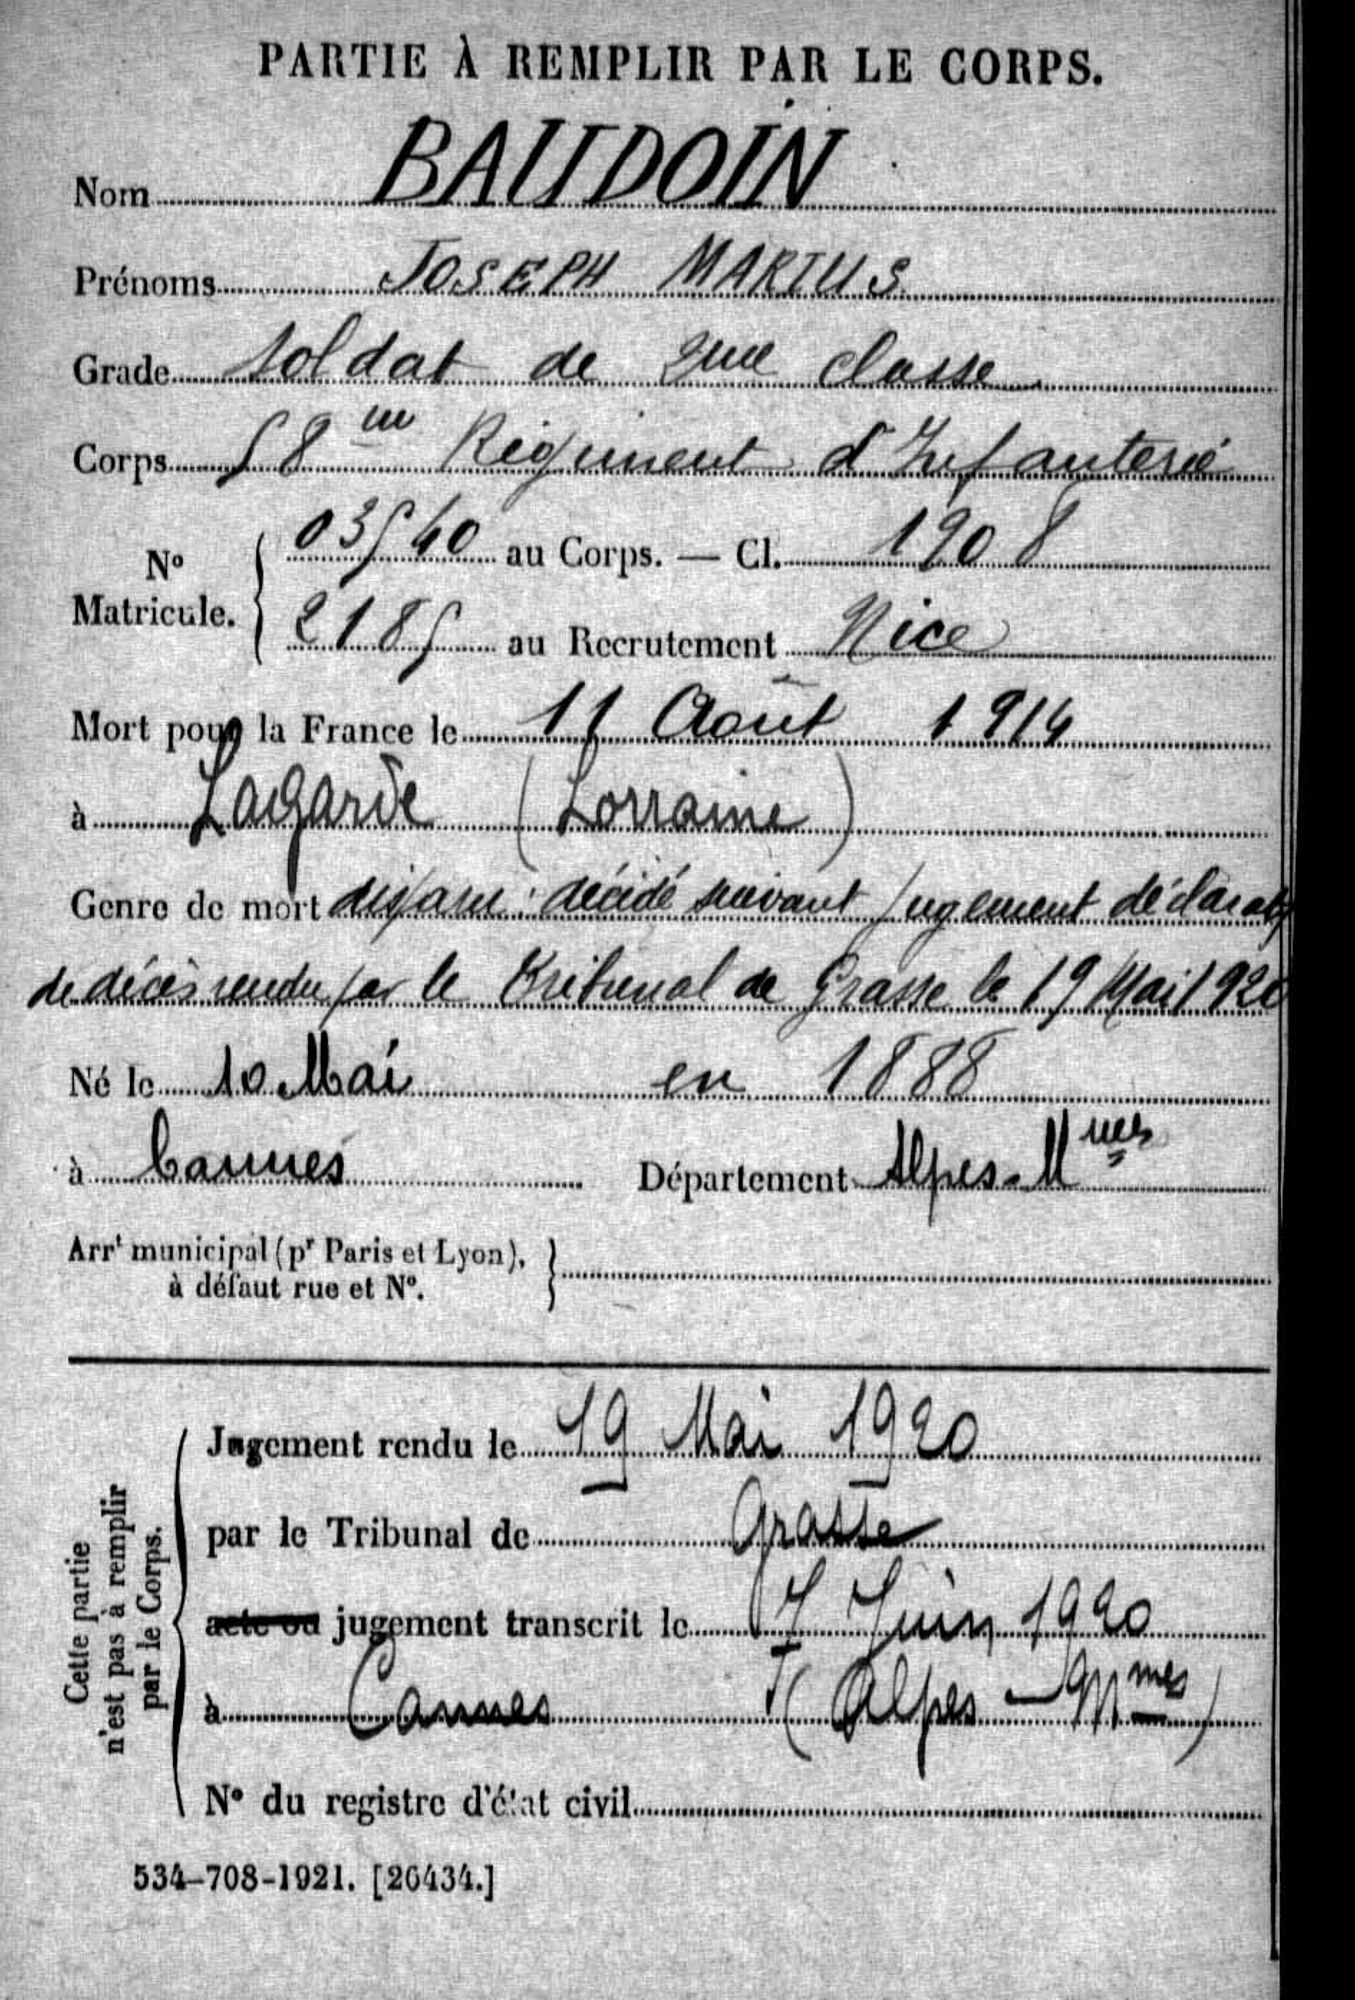 PARTIE À REMPLIR PAR LE CORPS.
Nom BAUDOIN
Prénoms JOSEPH MARIUS
Grade Soldat de 2me classe
Corps 58me Régiment d'Infanterie
No Matricule. { 03540 au Corps. — Cl. 1908
2185 au Recrutement Nice
Mort pour la France le 11 Août 1914
à Lagarde (Lorraine)
Genre de mort disparu : décidé suivant jugement déclaratif
de décès rendu par le tribunal de Grasse le 19 Mai 1920
Né le 10 Mai en 1888
à Cannes Département Alpes-Mmes
Arrt municipal (pr Paris et Lyon), }
à défaut rue et No.
Cette partie
n'est pas à remplir
par le Corps.
Jugement rendu le 19 Mai 1920
par le Tribunal de Grasse
acte ou jugement transcrit le 7 Juin 1920
à Cannes (Alpes-Mmes)
No du registre d'état civil
534-708-1921. [26434.]